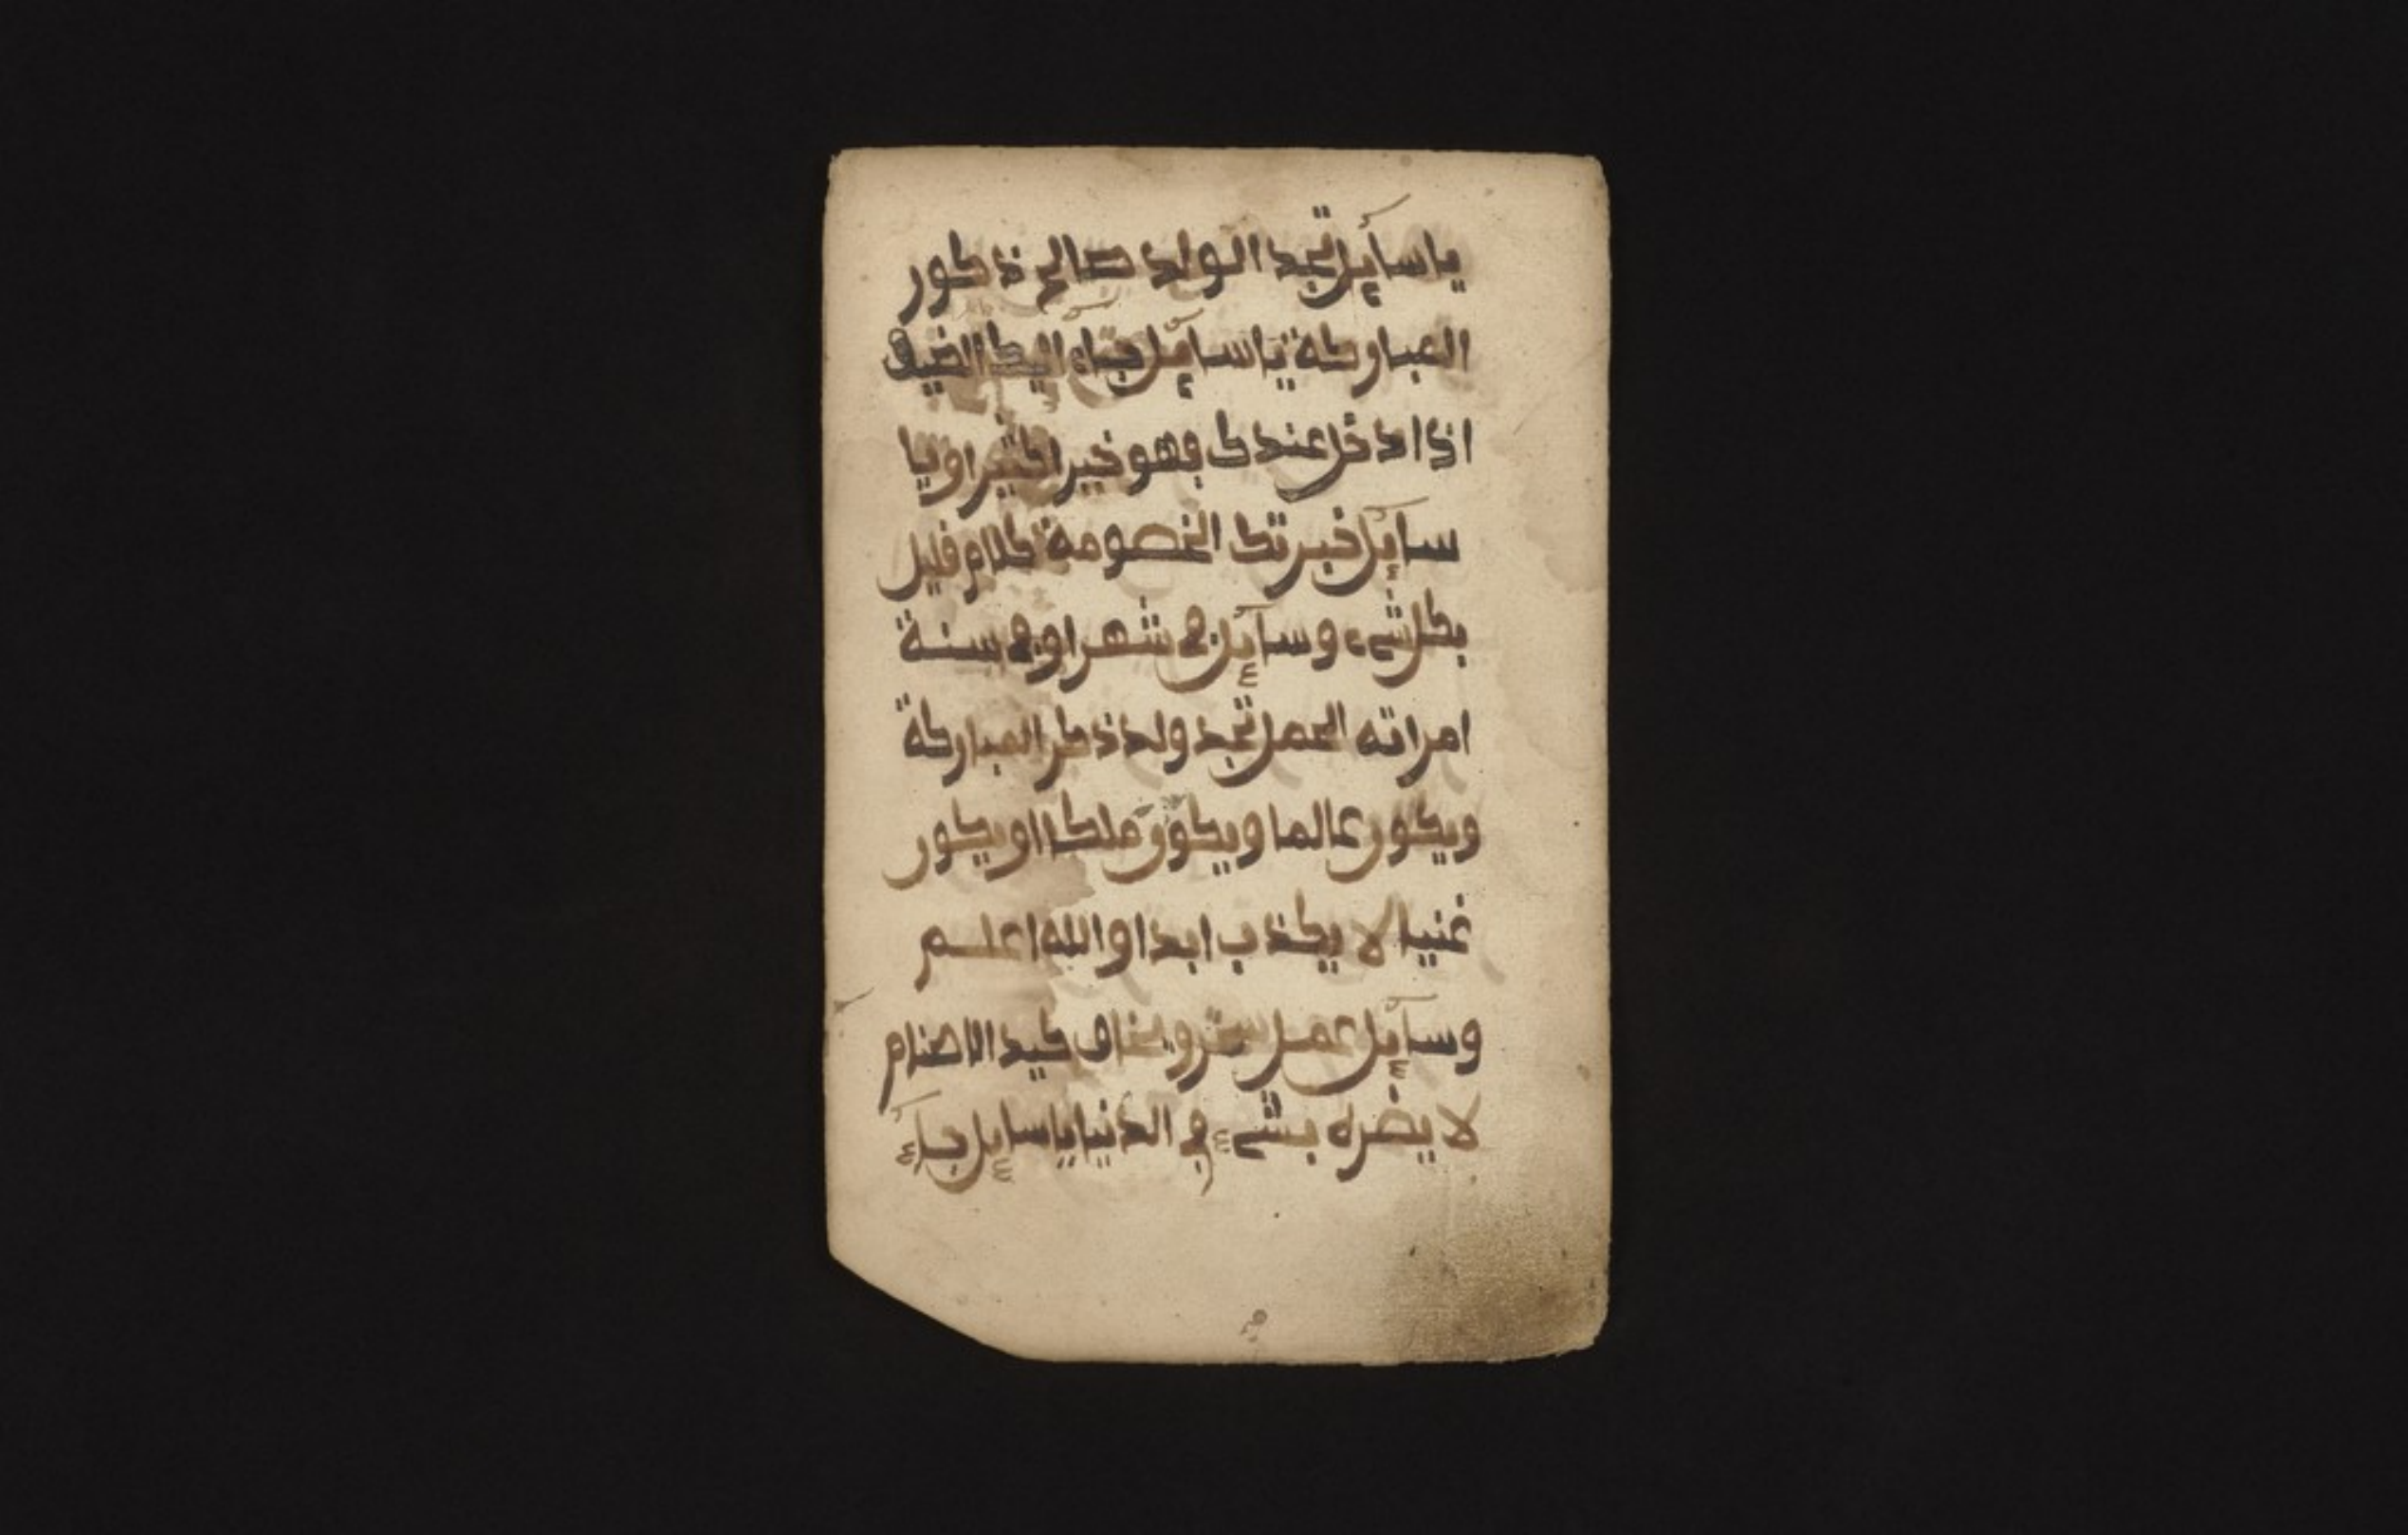 يا سآيل تجد الولد صالح ذكور
المباركة يا سآيل جاء اليك الضيف
اذا دخل عندك فهو خيرا كثيرا ويا
سآيل خبرتك الخصومة كلام قليل
بكل شيء وسآيل في شهرا وفي سنة
امراته الحمل تجد ولد ذكر المباركة
ويكون عالما ويكون ملكا او يكون
غنيا لا يكذب ابدا والله اعلم
وسآيل عمل ويخاف كيد الاصنام
لا يضره بشيء في الدنيا يا سايل جآء